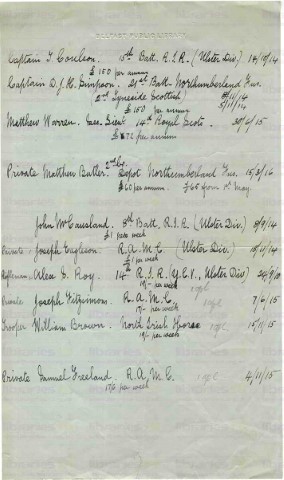 BELFAST PUBLIC LIBRARY
Captain T. Coulson. 15th Batt. R.I.R. (Ulster Div.) 14/10/14
£150 per annum
Captain D. J. H. Simpson. 21st Batt. Northumberland Fus.
2nd Tyneside Scottish
£150 per annum 5/11/14
Matthew Warren. Co. Sergt. 14th Royal Scots. 30/6/15
£72 per annum
Private Matthew Butler. Depot Northumberland Fus. 15/3/16
£60 per annum. £65 from 1st May.
John McCausland 8th Batt. R.I.R. (Ulster Div.) 8/9/14
£1 per week
Private Joseph Eagleson. R.A.M.C. (Ulster Div.) 18/11/14
£1 per week
Rifleman Alex S. Roy. 14th R.I.R. (Y.C.V., Ulster Div)
19/- per week
Private Joseph Fitzsimon. R.A.M.C. 7/6/15
17/- per week
Trooper William Brown. North Irish Horse 15/11/15
19/- per week
Private Samuel Freeland. R.A.M.C. 4/11/15
17/6 per week